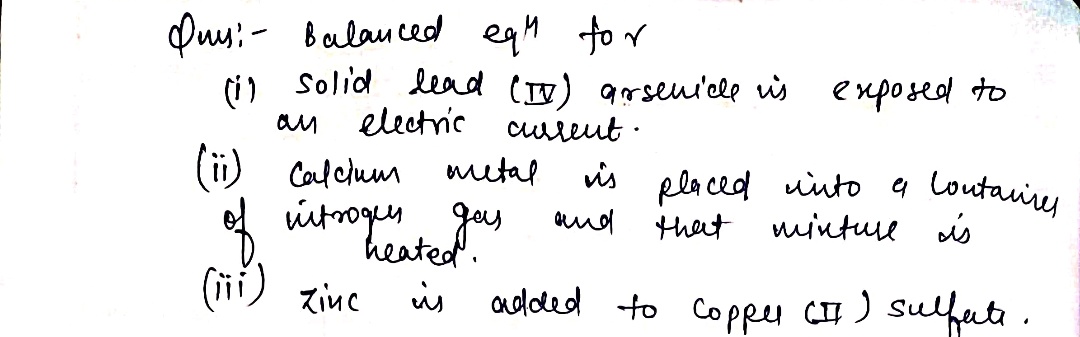 Qus:- Balanced eqn for
(i) Solid lead (IV) arsenide is exposed to
an electric current.
(ii) Calcium metal is placed into a Container
of nitrogen gas and that mixture is
heated.
(iii) Zinc is added to Copper (II) sulfate.